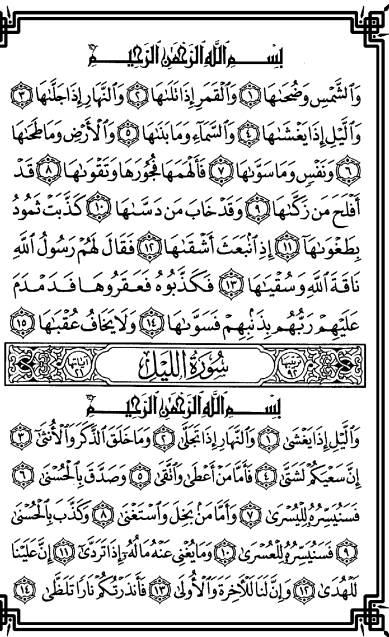 بِسْمِ ٱللَّهِ ٱلرَّحْمَٰنِ ٱلرَّحِيمِ
وَٱلشَّمْسِ وَضُحَىٰهَا ١ وَٱلْقَمَرِ إِذَا تَلَىٰهَا ٢ وَٱلنَّهَارِ إِذَا جَلَّىٰهَا ٣
وَٱلَّيْلِ إِذَا يَغْشَىٰهَا ٤ وَٱلسَّمَآءِ وَمَا بَنَىٰهَا ٥ وَٱلْأَرْضِ وَمَا طَحَىٰهَا
٦ وَنَفْسٍ وَمَا سَوَّىٰهَا ٧ فَأَلْهَمَهَا فُجُورَهَا وَتَقْوَىٰهَا ٨ قَدْ
أَفْلَحَ مَن زَكَّىٰهَا ٩ وَقَدْ خَابَ مَن دَسَّىٰهَا ١٠ كَذَّبَتْ ثَمُودُ
بِطَغْوَىٰهَآ ١١ إِذِ ٱنۢبَعَثَ أَشْقَىٰهَا ١٢ فَقَالَ لَهُمْ رَسُولُ ٱللَّهِ
نَاقَةَ ٱللَّهِ وَسُقْيَٰهَا ١٣ فَكَذَّبُوهُ فَعَقَرُوهَا فَدَمْدَمَ
عَلَيْهِمْ رَبُّهُم بِذَنۢبِهِمْ فَسَوَّىٰهَا ١٤ وَلَا يَخَافُ عُقْبَٰهَا ١٥
سُورَةُ ٱللَّيْلِ
بِسْمِ ٱللَّهِ ٱلرَّحْمَٰنِ ٱلرَّحِيمِ
وَٱلَّيْلِ إِذَا يَغْشَىٰ ١ وَٱلنَّهَارِ إِذَا تَجَلَّىٰ ٢ وَمَا خَلَقَ ٱلذَّكَرَ وَٱلْأُنثَىٰٓ ٣
إِنَّ سَعْيَكُمْ لَشَتَّىٰ ٤ فَأَمَّا مَنْ أَعْطَىٰ وَٱتَّقَىٰ ٥ وَصَدَّقَ بِٱلْحُسْنَىٰ ٦
فَسَنُيَسِّرُهُۥ لِلْيُسْرَىٰ ٧ وَأَمَّا مَنۢ بَخِلَ وَٱسْتَغْنَىٰ ٨ وَكَذَّبَ بِٱلْحُسْنَىٰ
٩ فَسَنُيَسِّرُهُۥ لِلْعُسْرَىٰ ١٠ وَمَا يُغْنِى عَنْهُ مَالُهُۥٓ إِذَا تَرَدَّىٰٓ ١١ إِنَّ عَلَيْنَا
لَلْهُدَىٰ ١٢ وَإِنَّ لَنَا لَلْءَاخِرَةَ وَٱلْأُولَىٰ ١٣ فَأَنذَرْتُكُمْ نَارًا تَلَظَّىٰ ١٤